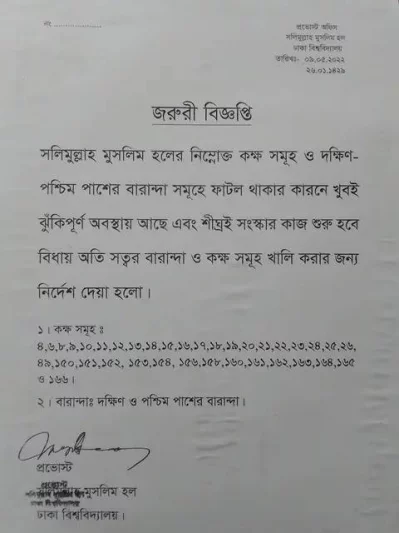 নং ......................
প্রভোস্ট অফিস
সলিমুল্লাহ মুসলিম হল
ঢাকা বিশ্ববিদ্যালয়
তারিখঃ- ০৯.০৫.২০২২
২৬.০১.১৪২৯
জরুরী বিজ্ঞপ্তি
সলিমুল্লাহ মুসলিম হলের নিম্নোক্ত কক্ষ সমূহ ও দক্ষিণ-
পশ্চিম পাশের বারান্দা সমূহে ফাটল থাকার কারনে খুবই
ঝুঁকিপূর্ণ অবস্থায় আছে এবং শীঘ্রই সংস্কার কাজ শুরু হবে
বিধায় অতি সত্বর বারান্দা ও কক্ষ সমূহ খালি করার জন্য
নির্দেশ দেয়া হলো।
১। কক্ষ সমূহ ঃ
৪,৬,৮,৯,১০,১১,১২,১৩,১৪,১৫,১৬,১৭,১৮,১৯,২০,২১,২২,২৩,২৪,২৫,২৬,
৪৯,১৫০,১৫১,১৫২, ১৫৩,১৫৪, ১৫৬,১৫৮,১৬০,১৬১,১৬২,১৬৩,১৬৪,১৬৫
ও ১৬৬।
২। বারান্দাঃ দক্ষিণ ও পশ্চিম পাশের বারান্দা।
প্রভোস্ট
প্রভোস্ট
সলিমুল্লাহ মুসলিম হল
ঢাকা বিশ্ববিদ্যালয়
ঢাকা বিশ্ববিদ্যালয়।